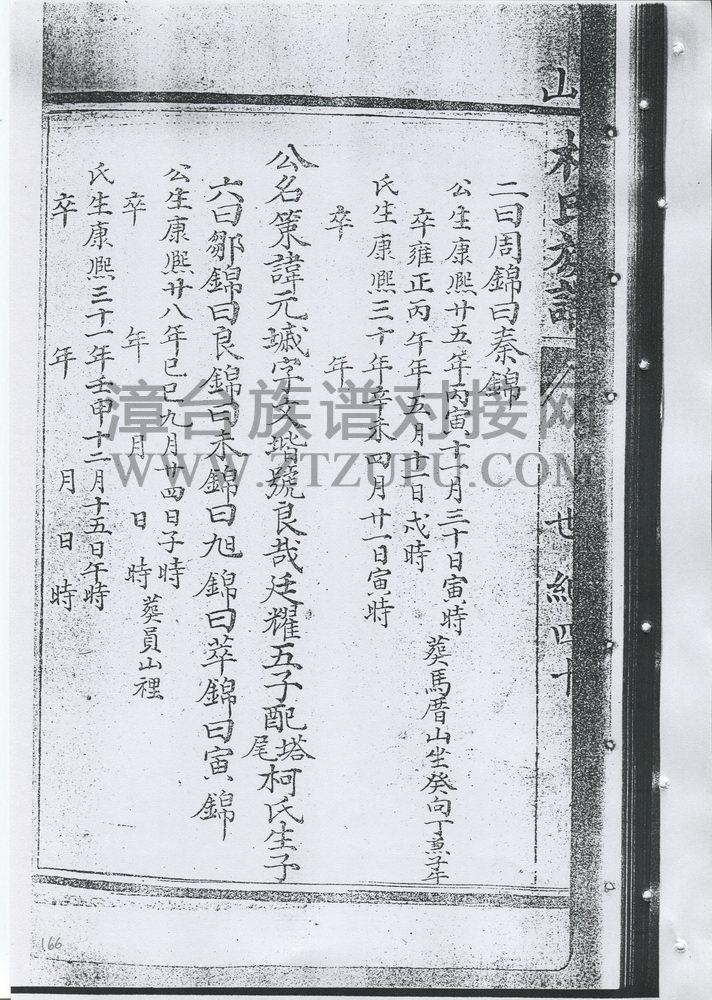 山
林氏族譜
世紀四十
二曰周錦曰秦錦
公生康熙廿五年丙寅十一月三十日寅時
卒雍正丙午年五月十一日戌時
葬馬厝山坐癸向丁兼子午
氏生康熙三十年辛未四月廿一日寅時
卒 年
公名策諱元墄字文堦號良哉廷耀五子配塔尾柯氏生子
六曰鄒錦曰良錦曰未錦曰旭錦曰萃錦曰寅錦
公生康熙廿八年己巳九月廿四日子時
卒 年 月 日 時 葬員山裡
氏生康熙三十一年壬申十二月十五日午時
卒 年 月 日 時
漳台族谱对接网
WWW.ZTZUPU.COM
166